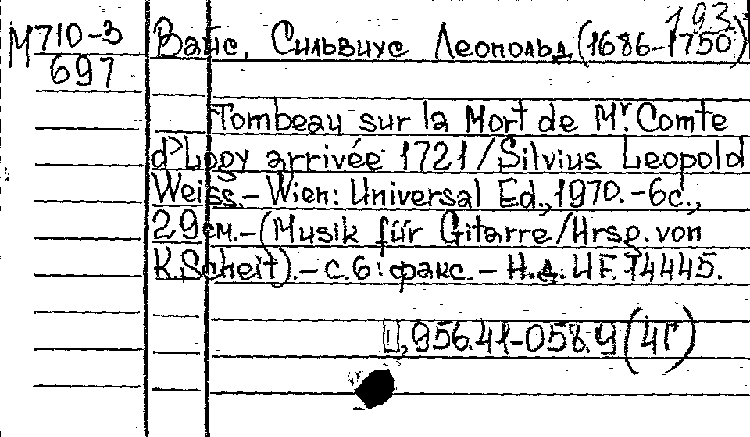 193
М710-3
697
Вайс, Сильвиус Леопольд (1686-1750)
Tombeau sur la Mort de Mr. Comte
d'Logy arrivée 1721/Silvius Leopold
Weiss.- Wien: Universal Ed., 1970.-6с.,
29см.-(Musik für Gitarre/Hrsg. von
K.Scheit).-С.6: факс.-Н.д. UF.
Ц,956.41-058.9(4Г)